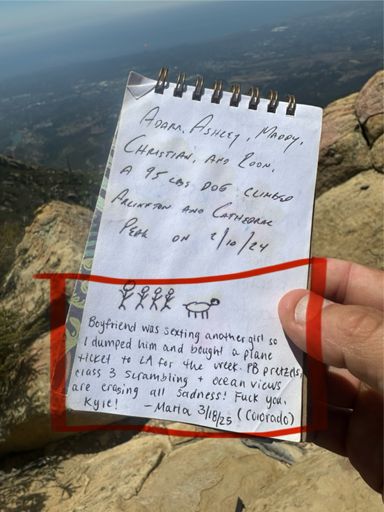 Adam, Ashley, Maddy,
Christian, and Loon,
a 95 lbs dog climbed
Arlington and Cathedral
Peak on 2/10/24
Boyfriend was sexting another girl so
I dumped him and bought a plane
ticket to LA for the week. PB pretzels,
class 3 scrambling + ocean views
are erasing all sadness! Fuck you,
Kyle! - Maria 3/18/25 (Colorado)